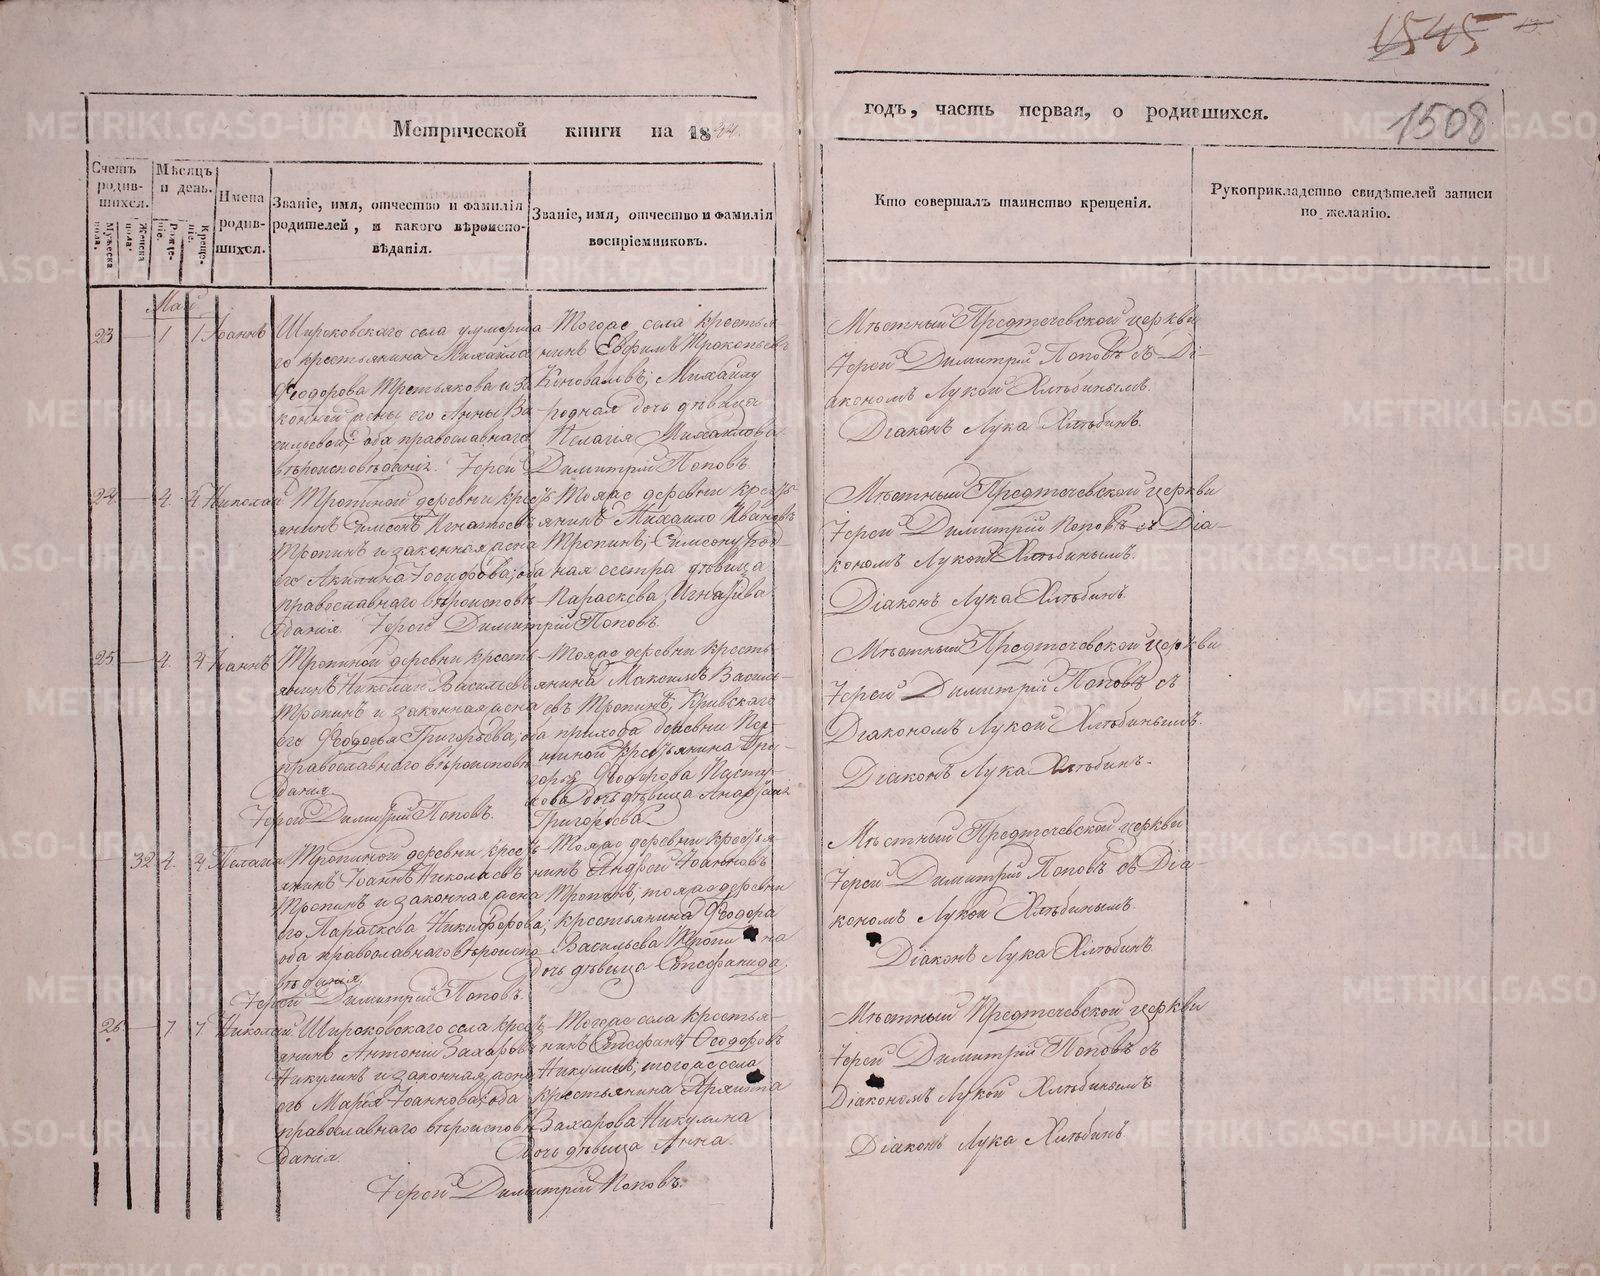 1545
1508
Метрической книги на 1834.
годъ, часть первая, о родившихся.
Счетъ родив-шихся.
Мужеска пола.
Женска пола.
Мѣсяцъ и день.
Рожде-ніе.
Креще-ніе.
Имена родив-шихся.
Званіе, имя, отчество и фамилія
родителей, и какого вѣроиспо-
вѣданія.
Званіе, имя, отчество и фамилія
воспріемниковъ.
Кто совершалъ таинство крещенія.
Рукоприкладство свидѣтелей записи
по желанію.
Май
23 1 1 Іоаннъ
Широковскаго села уумерша
го крестьянина Михайла
Ѳеодорова Третьякова и за
конной жены его Анны Ва
сильевой, оба православнаго
вѣроисповѣданія. Іерей Димитрій Поповъ
Тогоже села крестья
нинъ Евфимъ Прокопьевъ
Коноваловъ; Михайлу
родная дочь дѣвица
Пелагія Михайлова
Мѣстный Предтечевской церкви
Іерей Димитрій Поповъ съ Ді-
акономъ Лукой Хлѣбинымъ.
Діаконъ Лука Хлѣбинъ.
24 4. 4. Николай
Тропиной деревни крестъ
янинъ Симеонъ Игнатьевъ
Тропинъ и законная жена
его Акилина Іосифова; оба
православнаго вѣроисповѣ
данія. Іерей Димитрій Поповъ.
Тояже деревни крестъ-
янинъ Михайло Ивановъ
Тропинъ; Симеону род-
ная сестра дѣвица
Параскева Игнатіева
Мѣстный Предтечевской церкви
Іерей Димитрій Поповъ съ Діа-
кономъ Лукой Хлѣбинымъ.
Діаконъ Лука Хлѣбинъ.
25 4. 4 Іоаннъ
Тропиной деревни кресть
янинъ Николай Васильевъ
Тропинъ и законная жена
его Ѳеодосья Григорьева, оба
православнаго вѣроисповѣ
данія
Іерей Димитрій Поповъ.
Тояже деревни кресть
янинъ Максимъ Василь-
евъ Тропинъ; Кривскаго
прихода деревни
крестьянина Гри-
горья Ѳеодорова
дочь дѣвица
Григорьева
Мѣстный Предтечевской церкви
Іерей Димитрій Поповъ съ
Діакономъ Лукой Хлѣбинымъ.
Діаконъ Лука Хлѣбинъ.
32 4. 4. Пелагія
Тропиной деревни крестъ
янинъ Іоаннъ Николаевъ
Тропинъ и законная жена
его Параскева Никифорова;
оба православнаго вѣроиспо
вѣданія
Іерей Димитрій Поповъ.
Тояже деревни крестья
нинъ Андрей Іоанновъ
Тропинъ, тояже деревни
крестьянина Ѳеодора
Васильева Тропина
дочь дѣвица Епифанида.
Мѣстный Предтечевской церкви
Іерей Димитрій Поповъ съ Діа-
кономъ Лукой Хлѣбинымъ.
Діаконъ Лука Хлѣбинъ
26 7 7 Николай
Широковскаго села крестъ
янинъ Антоній Захаровъ
Никулинъ и законная жена
его Марія Іоаннова; оба
православнаго вѣроисповѣ
данія.
Іерей Димитрій Поповъ.
Тогоже села крестья-
нинъ Епифанъ Ѳеодоровъ
Никулинъ; тогоже села
крестьянина
Захарова Никулина
дочь дѣвица Анна.
Мѣстный Предтечевской церкви
Іерей Димитрій Поповъ съ
Діакономъ Лукой Хлѣбинымъ
Діаконъ Лука Хлѣбинъ.
METRIKI.GASO-URAL.RU